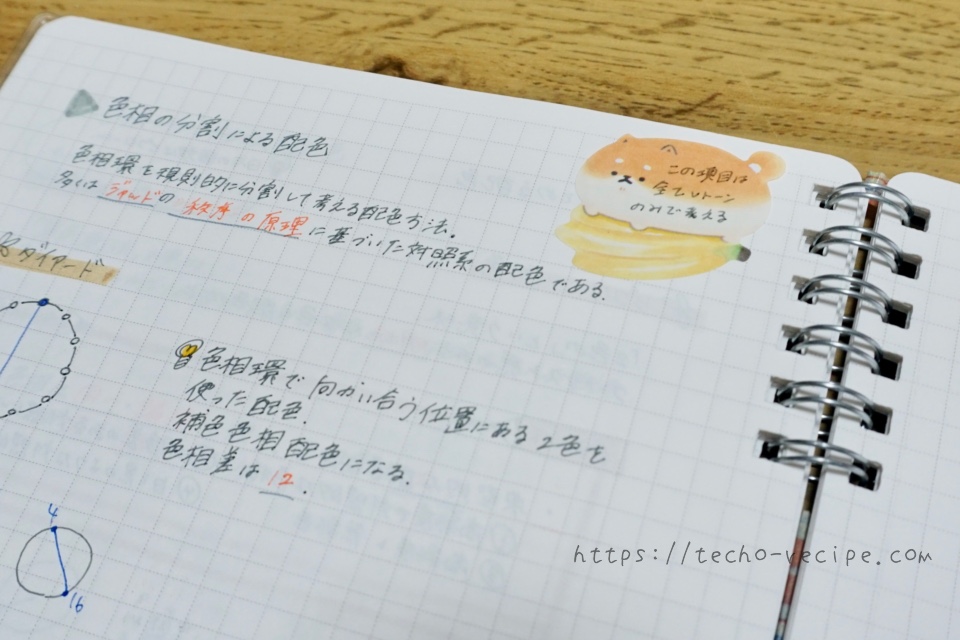 色相の分割による配色
色相環を規則的に分割して考える配色方法。
多くは ジャッドの 秩序の原理 に基づいた対照系の配色である。
この項目は
全てvトーン
のみで考える
ダイアード
色相環で向かい合う位置にある2色を
使った配色。
補色色相配色になる。
色相差は 12 .
4
16
https://techo-recipe.com